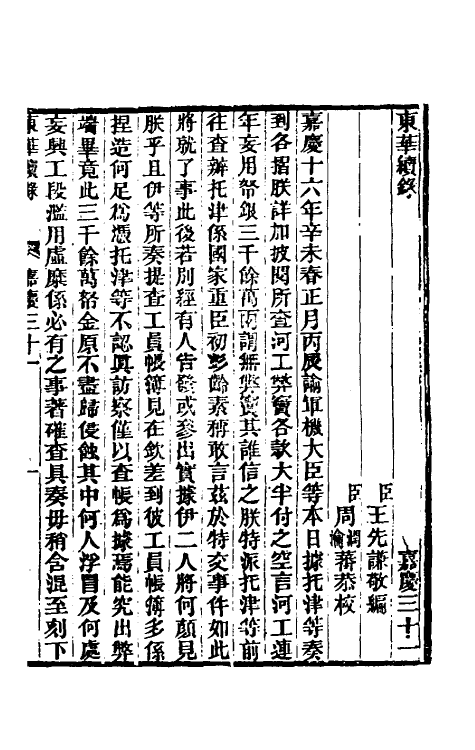 東華續錄
嘉慶三十一
臣王先謙敬編
臣周潤蕃瀹恭校
嘉慶十六年辛未春正月丙辰諭軍機大臣等本日據托津等奏
到各摺朕詳加披閱所查河工弊竇各款大半付之空言河工連
年妄用帑銀三千餘萬兩謂無弊竇其誰信之朕特派托津等前
往查辦托津係國家重臣初彭齡素稱敢言茲於特交事件如此
將就了事此後若別經有人告發或參出實據伊二人將何顏見
朕乎且伊等所奏提查工員帳簿見在欽差到彼工員帳簿多係
捏造何足為憑托津等不認眞訪察僅以查帳為據焉能究出弊
端畢竟此三千餘萬帑金原不盡歸侵蝕其中何人浮冒及何處
妄興工段濫用虛糜係必有之事著確查具奏毋稍含混至刻下
東華續錄
嘉慶三十一
一